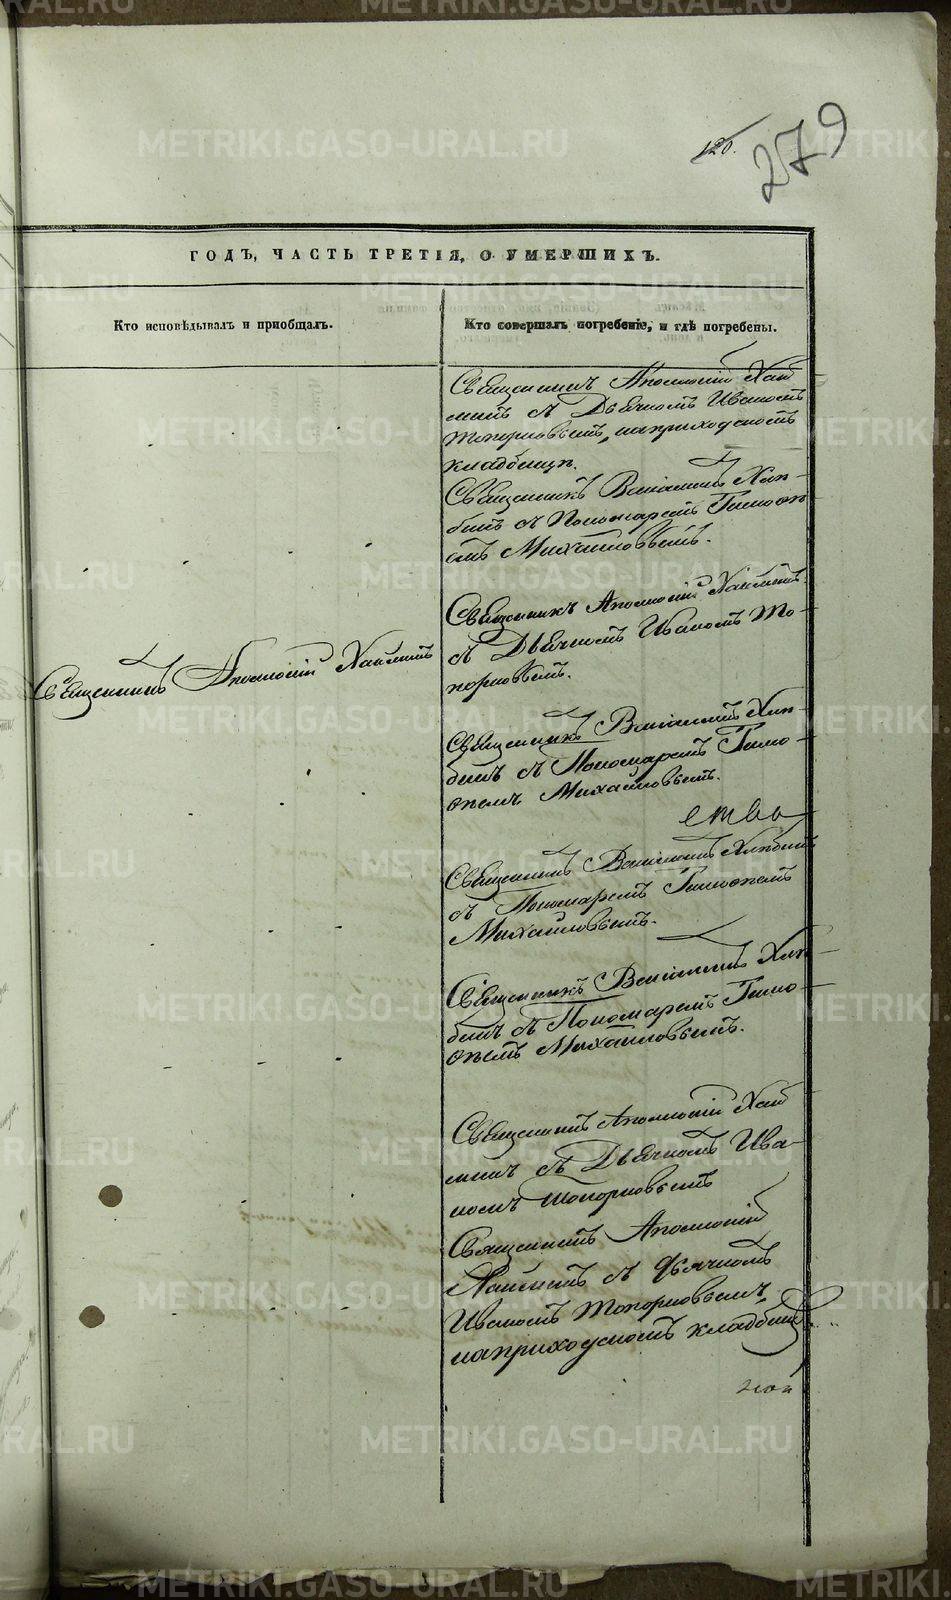 120.
279
ГОДЪ, ЧАСТЬ ТРЕТІЯ, О УМЕРШИХЪ.
Кто исповѣдывалъ и приобщалъ.
Кто совершалъ погребеніе, и гдѣ погребены.
Священникъ Аполлоній
съ Дьячкомъ Иваномъ
Топорковымъ, на приходскомъ
кладбищѣ.
Священникъ Веніаминъ Хлѣ-
бинъ съ Пономаремъ Тимоѳе
емъ Михайловымъ.
Священникъ Аполлоній
съ Дьячкомъ Иваномъ То-
порковымъ.
Священникъ Аполлоній
Священникъ Веніаминъ Хлѣ-
бинъ съ Пономаремъ Тимо-
ѳеемъ Михайловымъ.
Священникъ Веніаминъ Хлѣбинъ
съ Пономаремъ Тимоѳеемъ
Михайловымъ.
Священникъ Веніаминъ Хлѣ-
бинъ съ Пономаремъ Тимо-
ѳеемъ Михайловымъ.
Священникъ Аполлоній
съ Дьячкомъ Ива-
номъ Топорковымъ
Священникъ Аполлоній
съ Дьячкомъ
Иваномъ Топорковымъ,
на приходскомъ кладбищѣ.
METRIKI.GASO-URAL.RU